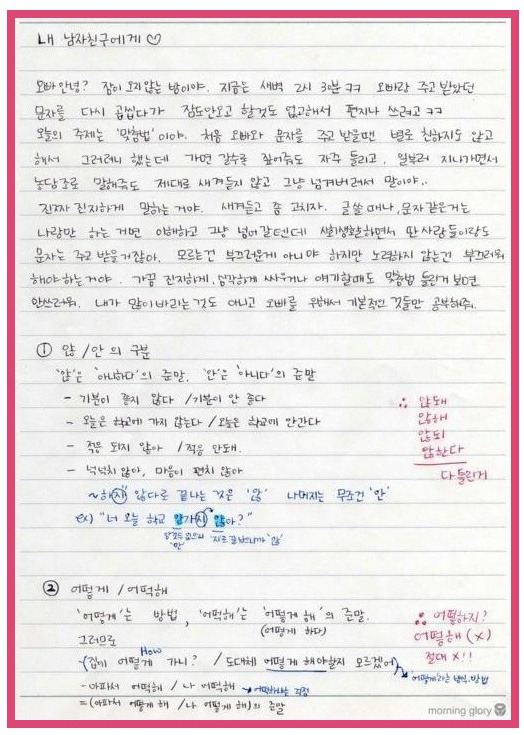 내 남자친구에게 ♡
오빠 안녕? 잠이 오지 않는 밤이야. 지금은 새벽 2시 30분 ㅋㅋ 오빠랑 주고 받았던
문자를 다시 곱씹다가 잠도 안오고 할것도 없고해서 편지나 쓰려고 ㅋㅋ
오늘의 주제는 '맞춤법' 이야. 처음 오빠와 문자를 주고 받을땐 별로 친하지도 않고
해서 그러려니 했는데 가면 갈수록 짚어줘도 자주 틀리고, 일부러 지나가면서
농담조로 말해줘도 제대로 새겨듣지 않고 그냥 넘겨버려서 말이야..
진짜 진지하게 말하는 거야. 새겨듣고 좀 고치자. 글쓸 때나, 문자 같은거는
나랑만 하는 거면 이해하고 그냥 넘어 갈텐데 사회생활하면서 딴 사람들이랑도
문자는 주고 받을거잖아. 모르는건 부끄러운게 아니야 하지만 노력하지 않는건 부끄러워
해야하는거야. 가끔 진지하게, 심각하게 싸우거나 얘기할때도 맞춤법 틀린거 보면
안쓰러워. 내가 많이 바라는것도 아니고 오빠를 위해서 기본적인 것들만 공부해줘.
① 않 / 안 의 구분
'않'은 '아니하다'의 준말, '안'은 '아니다'의 준말
- 기분이 좋지 않다 / 기분이 안 좋다
- 오늘은 학교에 가지 않는다 / 오늘은 학교에 안간다
- 적응 되지 않아 / 적응 안돼.
- 넉넉치 않아, 마음이 편치 않아
∴ 않돼
않해
않되
않한다
다 틀린거
~해지 않다로 끝나는 것은 '않' 나머지는 무조건 '안'
ex) "너 오늘 학교 안가지 않아?"
'안'
'지로 끝났으니까 '않'
② 어떻게 / 어떡해
'어떻게'는 방법, '어떡해'는 '어떻게 해'의 준말.
(어떻게 하다)
그러므로
How
- (집에 어떻게 가니? / 도대체 어떻게 해야할지 모르겠어)
- 아파서 어떡해 / 나 어떡해
= (아파서 어떻게 해 / 나 어떻게 해)의 준말
∴ 어떻하지?
어떻해 (x)
절대 X!!
morning glory